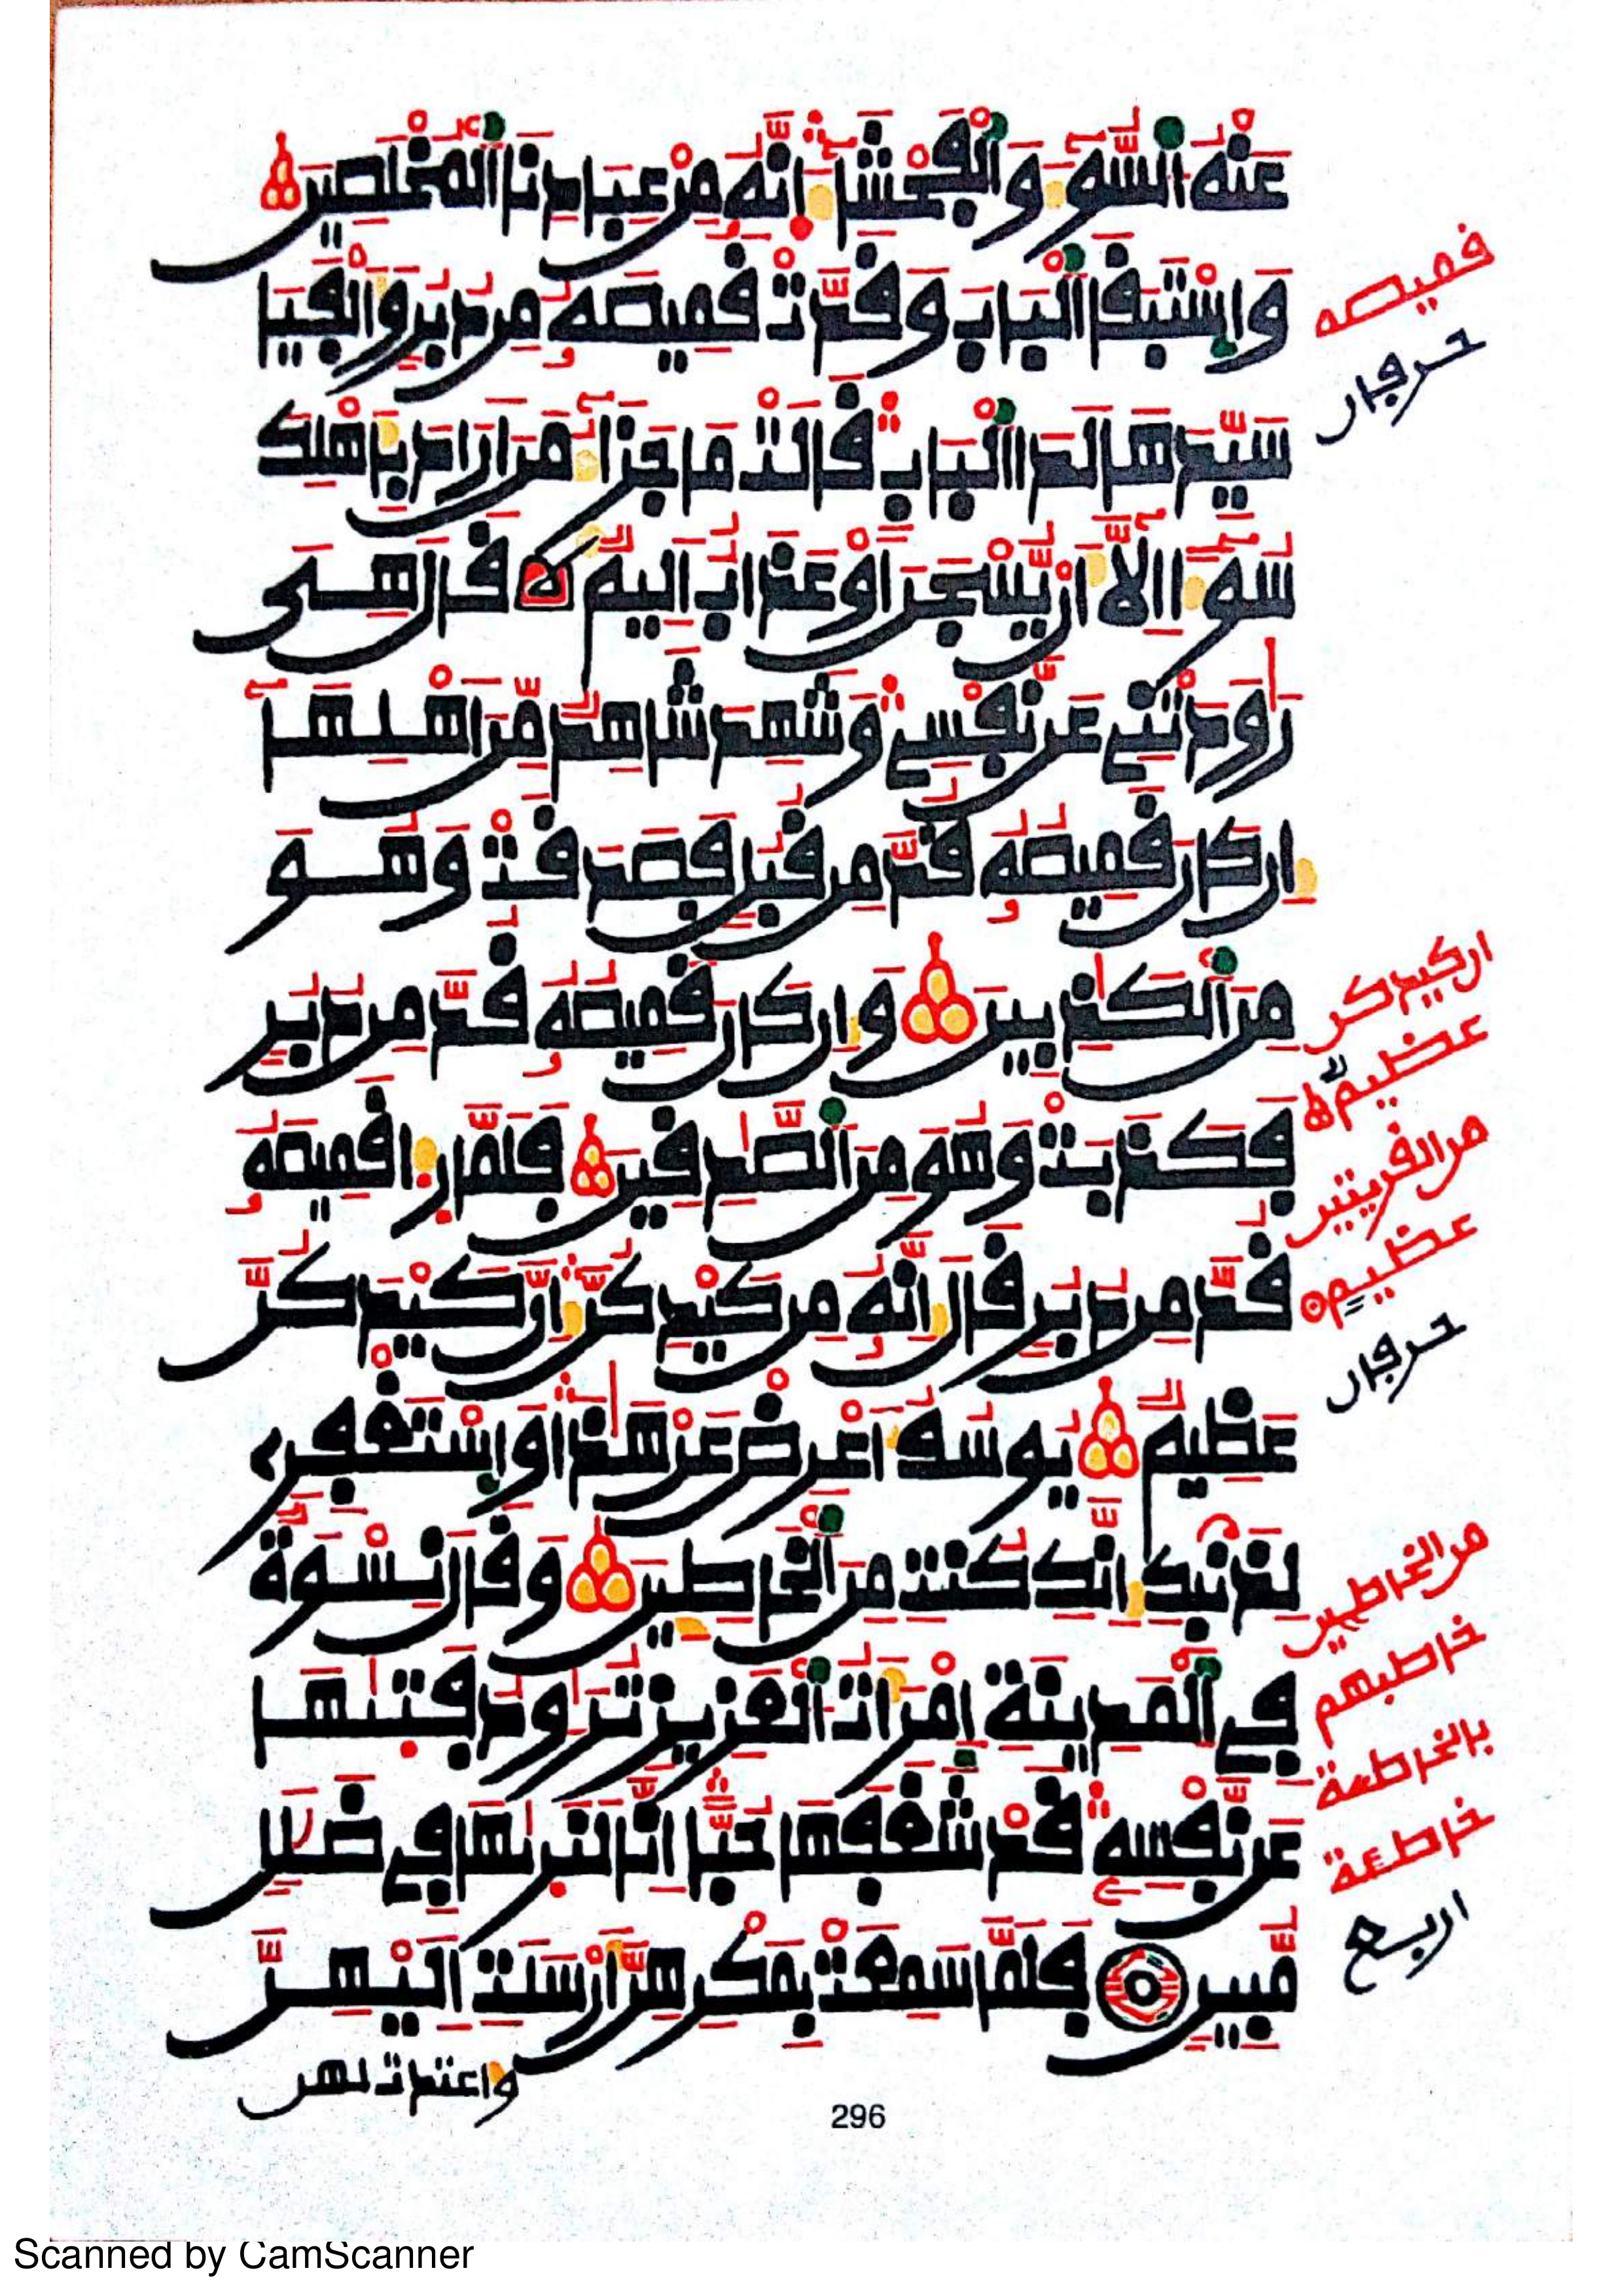 عَنْهُ اُ۬لسُّوٓءَ وَالْفَحْشَآءَ اِنَّهُۥ مِنْ عِبَادِنَا اَ۬لْمُخْلَصِينَ
وَاسْتَبَقَا اَ۬لْبَابَ وَقَدَّتْ قَمِيصَهُۥ مِن دُبُرٍ وَأَلْفَيَا
سَيِّدَهَا لَدَا اَ۬لْبَابِ قَالَتْ مَا جَزَآءُ مَنَ اَرَادَ بِأَهْلِكَ
سُوٓءاً اِلَّآ أَنْ يُّسْجَنَ أَوْ عَذَابٌ اَلِيمٌ قَالَ هِىَ
رَٰوَدَتْنِے عَن نَّفْسِے وَشَهِدَ شَاهِدٌ مِّنَ اَهْلِهَآ
إِن كَانَ قَمِيصُهُۥ قُدَّ مِن قُبُلٍ فَصَدَقَتْ وَهُوَ
مِنَ اَ۬لْكَٰذِبِينَ وَإِن كَانَ قَمِيصُهُۥ قُدَّ مِن دُبُرٍ
فَكَذَبَتْ وَهُوَ مِنَ اَ۬لصَّٰدِقِينَ فَلَمَّا رَءَا قَمِيصَهُۥ
قُدَّ مِن دُبُرٍ قَالَ إِنَّهُۥ مِن كَيْدِكُنَّ إِنَّ كَيْدَكُنَّ
عَظِيمٌ يُوسُفُ أَعْرِضْ عَنْ هَٰذَا وَاسْتَغْفِرِے
لِذَنۢبِكِ إِنَّكِ كُنتِ مِنَ اَ۬لْخَاطِـِٕينَ وَقَالَ نِسْوَةٌ
فِے اِ۬لْمَدِينَةِ اِمْرَأَتُ اُ۬لْعَزِيزِ تُرَٰوِدُ فَتَىٰهَا
عَن نَّفْسِهِۦ قَدْ شَغَفَهَا حُبّاً اِنَّا لَنَرَىٰهَا فِے ضَلَٰلٍ
مُّبِينٍ فَلَمَّا سَمِعَتْ بِمَكْرِهِنَّ أَرْسَلَتِ اِلَيْهِنَّ
واعتدت لهن
قميصه
حرفان
ان كيدكن
عظيمٌ
من القريتين
عظيمٍ
حرفان
من الخاطين
خاطبهم
بالخاطئة
خاطئة
اربع
296
Scanned by CamScanner